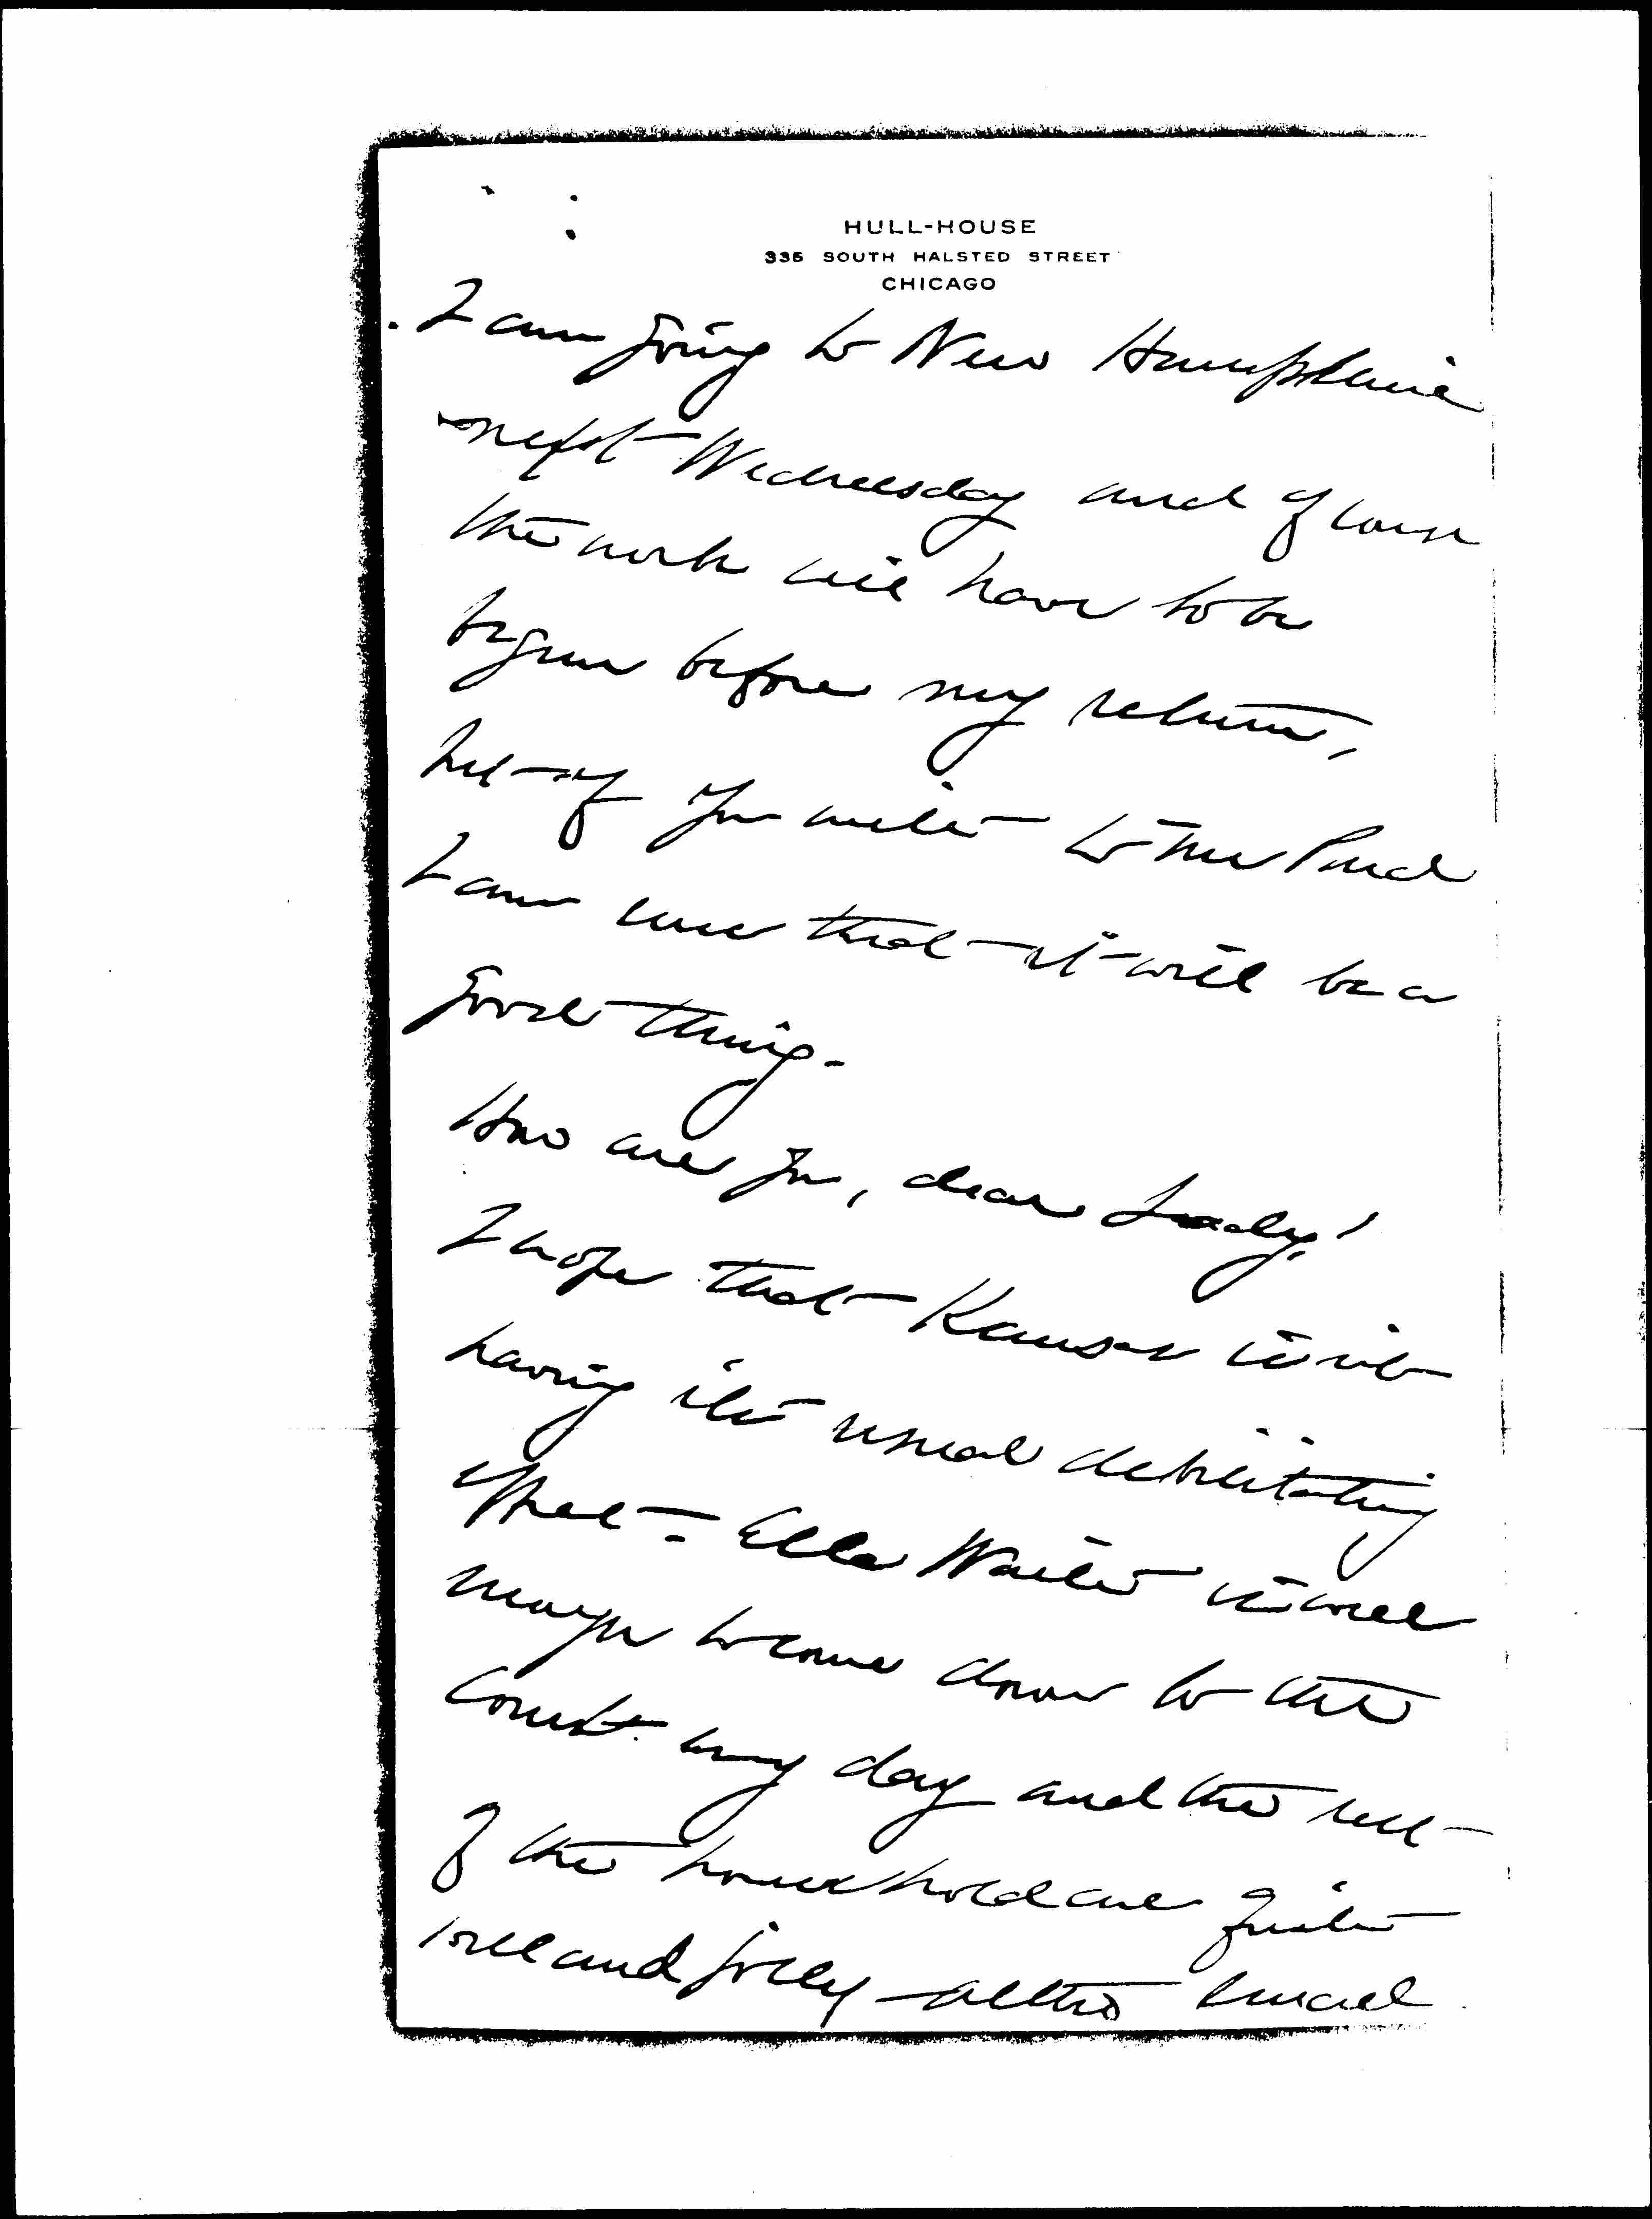 HULL-HOUSE
335 SOUTH HALSTED STREET
CHICAGO
I am going to New Hampshire
next Wednesday and of course
the work will have to be
begun before my return,
but if you write to me
I am sure that it will be a
good thing.
How are you, dear Lady!
I hope that Kansas is not
having its usual debilitating
effect. Ella Waite is well
enough to come down to the
Court every day and the rest
of the household are quite
well and jolly altho